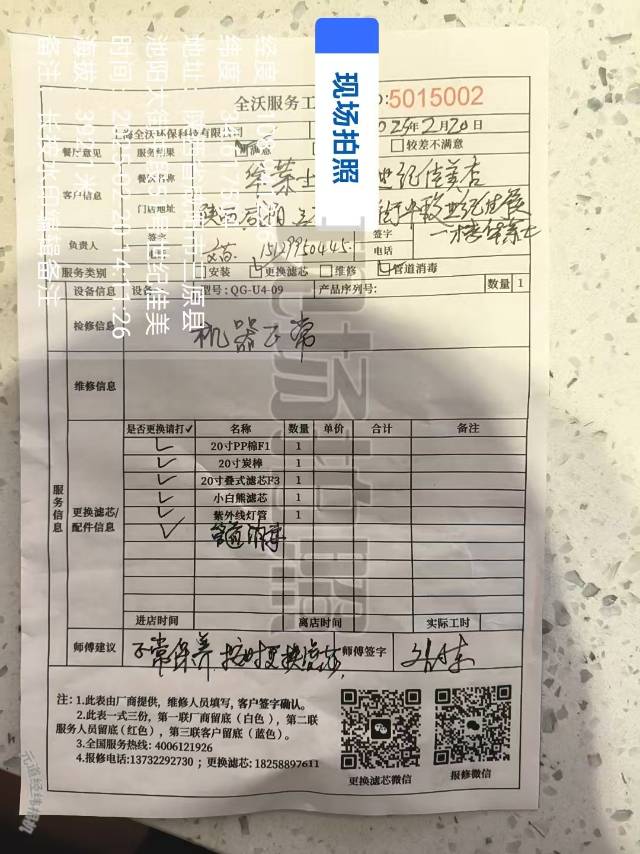 现场拍照
全沃服务工
:5015002
上海全沃环保科技有限公司
2月20日
餐厅意见
服务结果
满意
较差不满意
客户信息
餐饮名称
华莱士
世纪佳美店
门店地址
陕西咸阳
一楼华莱士
负责人
签字
15129950445
签字
电话
服务类别
安装
更换滤芯
维修
管道消毒
设备信息
设备
型号: QG-U4-09
产品序列号:
数量
1
检修信息
机器正常
维修信息
服务信息
更换滤芯/配件信息
是否更换请打✓
名称
数量
单价
合计
备注
20寸PP棉F1
1
20寸炭棒
1
20寸叠式滤芯F3
1
小白熊滤芯
1
紫外线灯管
1
管道消毒
进店时间
离店时间
实际工时
师傅建议
正常保养 按时更换滤芯
师傅签字
注: 1.此表由厂商提供，维修人员填写, 客户签字确认。
2.此表一式三份，第一联厂商留底（白色），第二联
服务人员留底(红色），第三联客户留底（蓝色）。
3.全国服务热线: 4006121926
4.报修电话:13732292730 ；更换滤芯: 18258897611
更换滤芯微信
报修微信
元道经纬相机
现场拍照